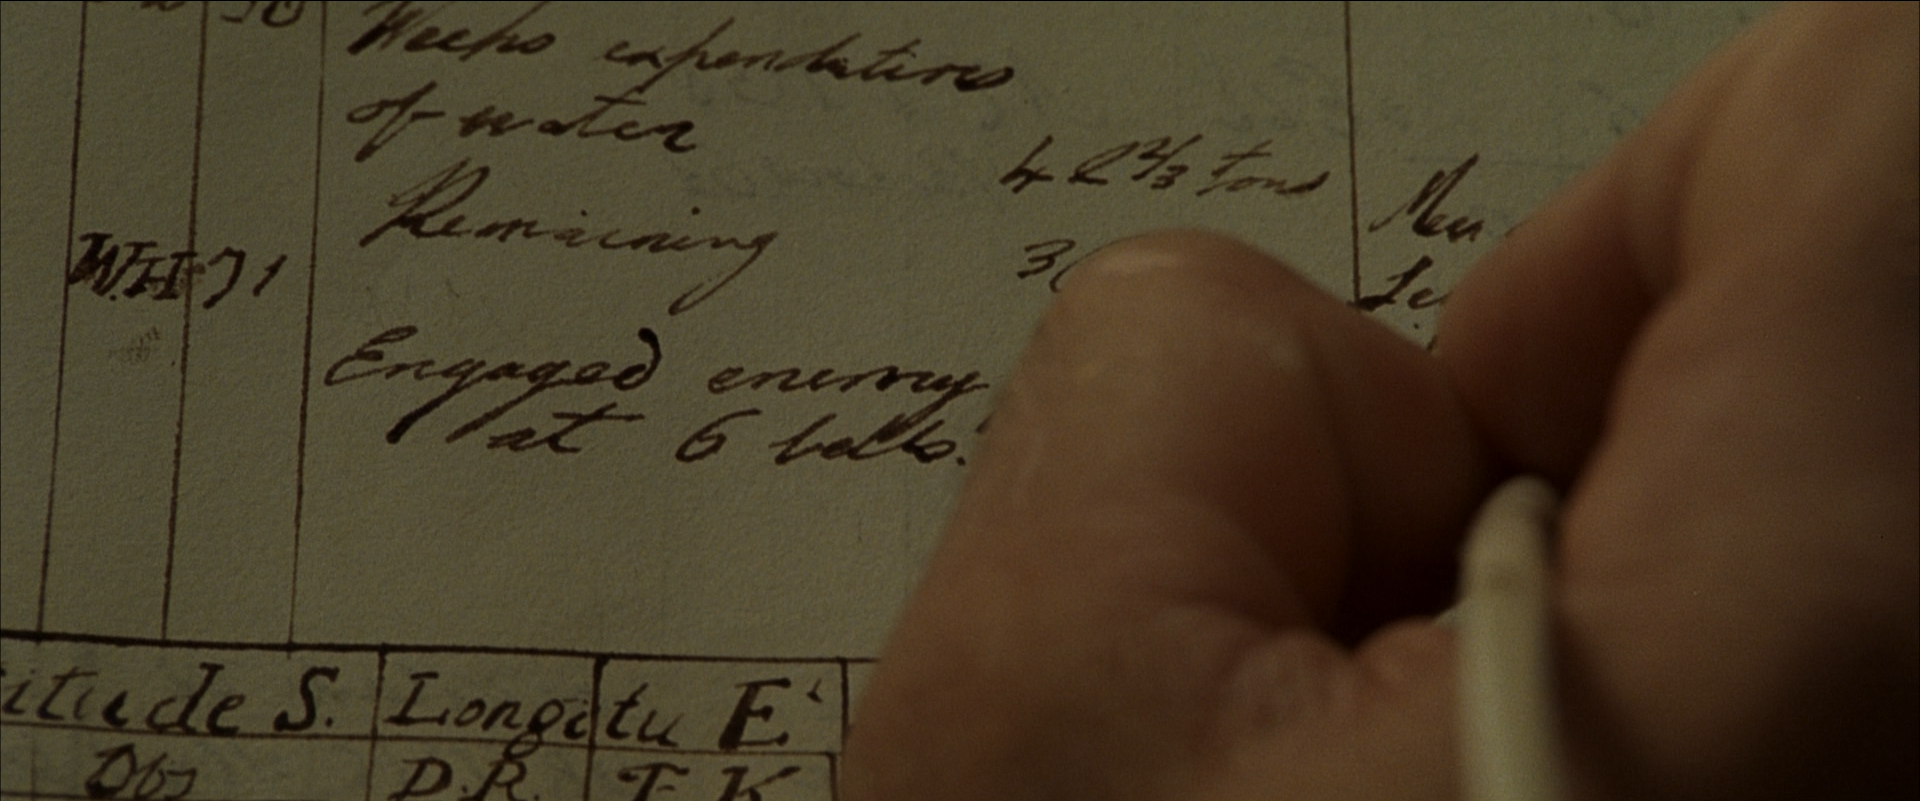 30
Weeks expenditures
of water 42 2/3 tons
Remaining 3
W.H 71
Engaged enemy
at 6 bells.
itude S. Longitu E.
Obs D.R. T.K